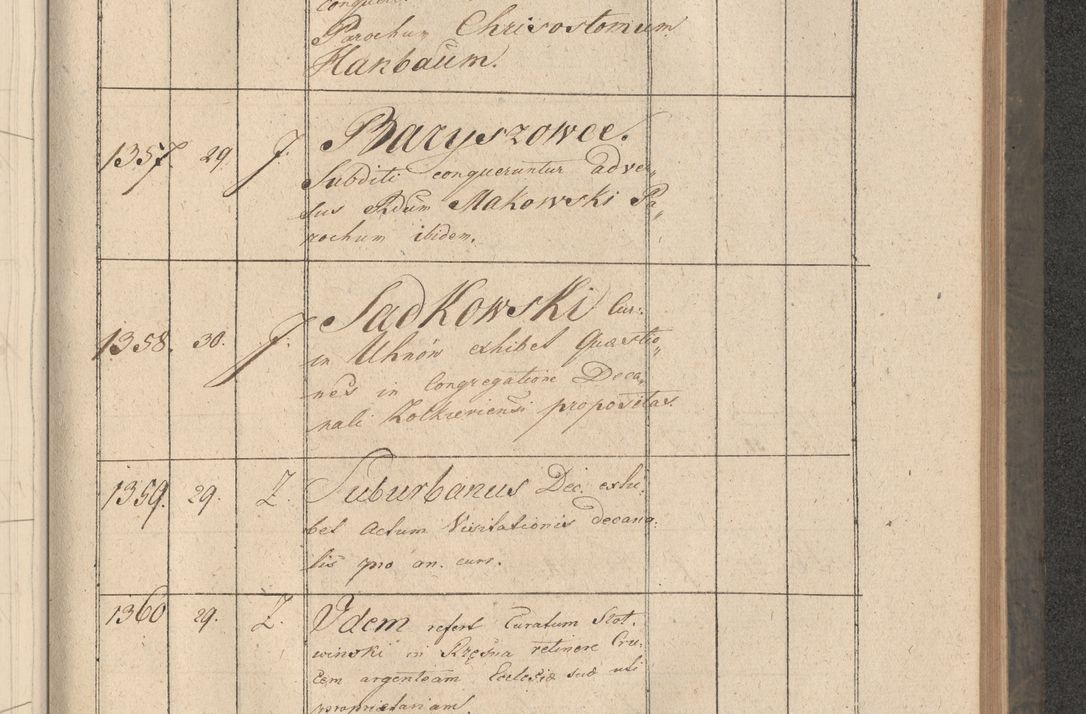 Parochum Chrisostomum
Hanbaum.
1357. 29. J. Baryszowce.
Subditi conqueruntur adver„
sus Rdum Makowski Pa„
rochum ibidem.
1358. 30. J. Sadkowski Cur:
in Uhnów exhibet Quæstio„
nes in Congregatione Deca„
nali Zolkieviensi propositas.
1359. 29. Z. Suburbanus Dec. exhi„
bet Actum Visitationis decana„
lis pro an. curr.
1360 29. Z. Idem refert Curatum Slot„
winski in Rzęsna retinere Cru„
cem argenteam Ecclesiæ suæ uti
proprietariam.